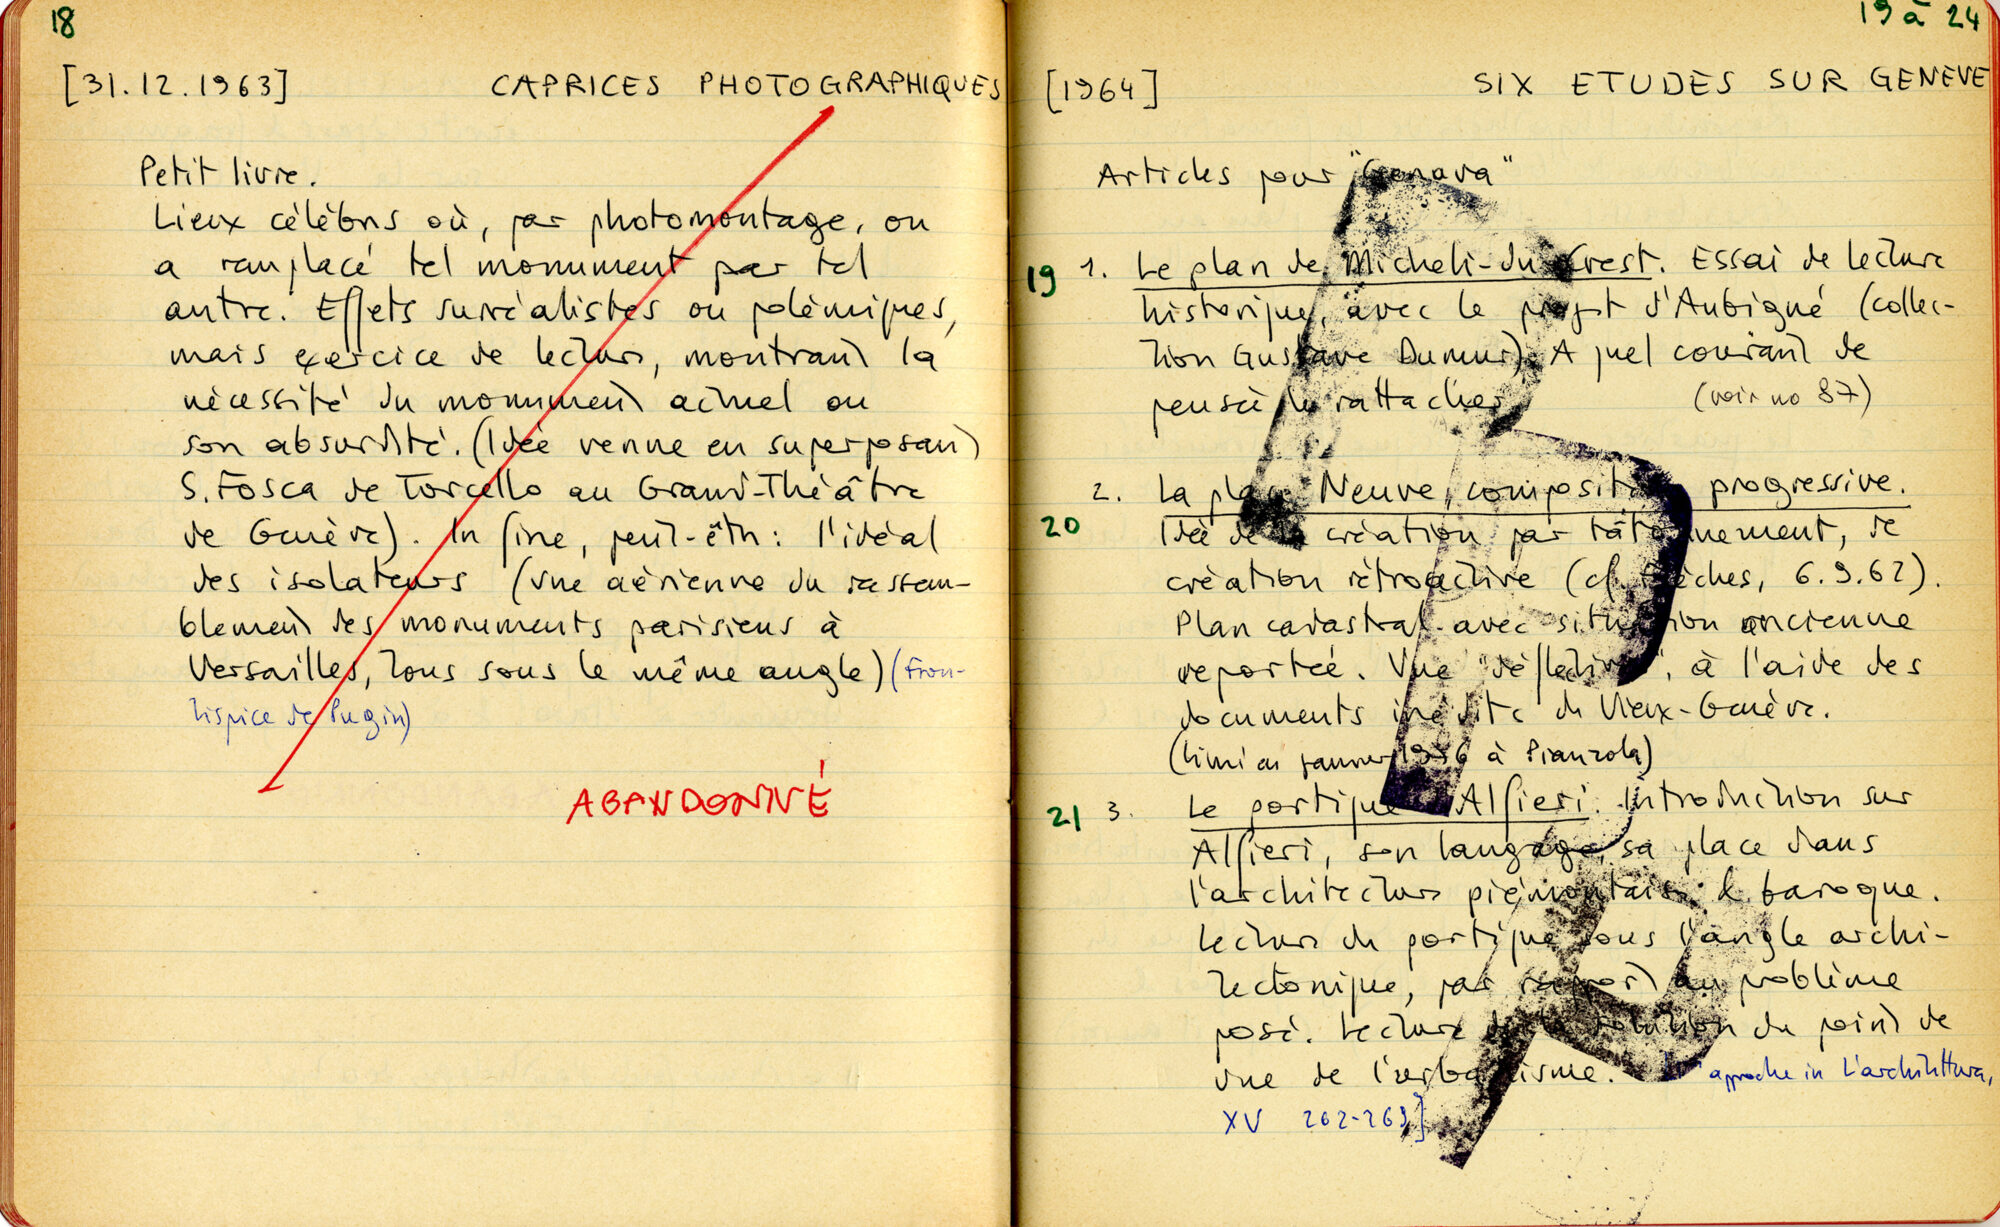 18
[31.12.1963] CAPRICES PHOTOGRAPHIQUES
Petit livre.
Lieux célèbres où, par photomontage, on
a remplacé tel monument par tel
autre. Effets surréalistes ou polémiques,
mais exercice de lecture, montrant la
nécessité du monument actuel ou
son absurdité. (Idée venue en superposant
S. Fosca de Torcello au Grand-Théâtre
de Genève). In fine, peut-être: l'idéal
des isolateurs (vue aérienne du rassem-
blement des monuments parisiens à
Versailles, tous sous le même angle) (Fron-
tispice de Pugin)
ABANDONNÉ
19 à 24
[1964] SIX ETUDES SUR GENEVE
Articles pour "Genava"
19 1. Le plan de Micheli-du Crest. Essai de lecture
historique, avec le projet d'Aubigné (collec-
tion Gustave Dumur). A quel courant de
pensée le rattacher
(voir no 87)
2. La place Neuve, composition progressive.
20 Idée de la création par tâtonnement, de
création rétroactive (cf. Brèches, 6.9.62).
Plan cadastral avec situation ancienne
reportée. Vue "déflective", à l'aide des
documents inédits du Vieux-Genève.
(limi en janvier 1976 à Pianzola)
21 3. Le portique Alfieri. Introduction sur
Alfieri, son langage, sa place dans
l'architecture piémontaise & baroque.
Lecture du portique sous l'angle archi-
tectonique, par rapport au problème
posé. Lecture de la solution du point de
vue de l'urbanisme. approche in L'architettura,
XV 262-269]